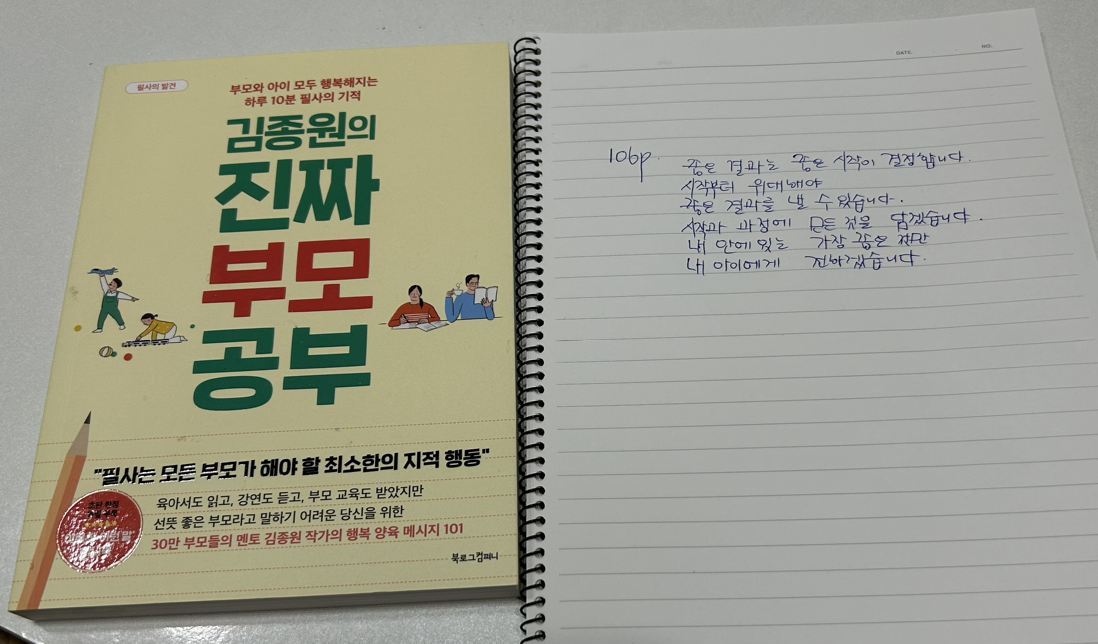 필사의 발견
부모와 아이 모두 행복해지는
하루 10분 필사의 기적
김종원의
진짜
부모
공부
"필사는 모든 부모가 해야 할 최소한의 지적 행동"
육아서도 읽고, 강연도 듣고, 부모 교육도 받았지만
선뜻 좋은 부모라고 말하기 어려운 당신을 위한
30만 부모들의 멘토 김종원 작가의 행복 양육 메시지 101
북로그컴퍼니
DATE.
NO.
106p
좋은 결과는 좋은 시작이 결정합니다.
시작부터 위대해야
좋은 결과를 낼 수 있습니다.
시작과 과정에 모든 것을 담겠습니다.
내 안에 있는 가장 좋은 것만
내 아이에게 전하겠습니다.